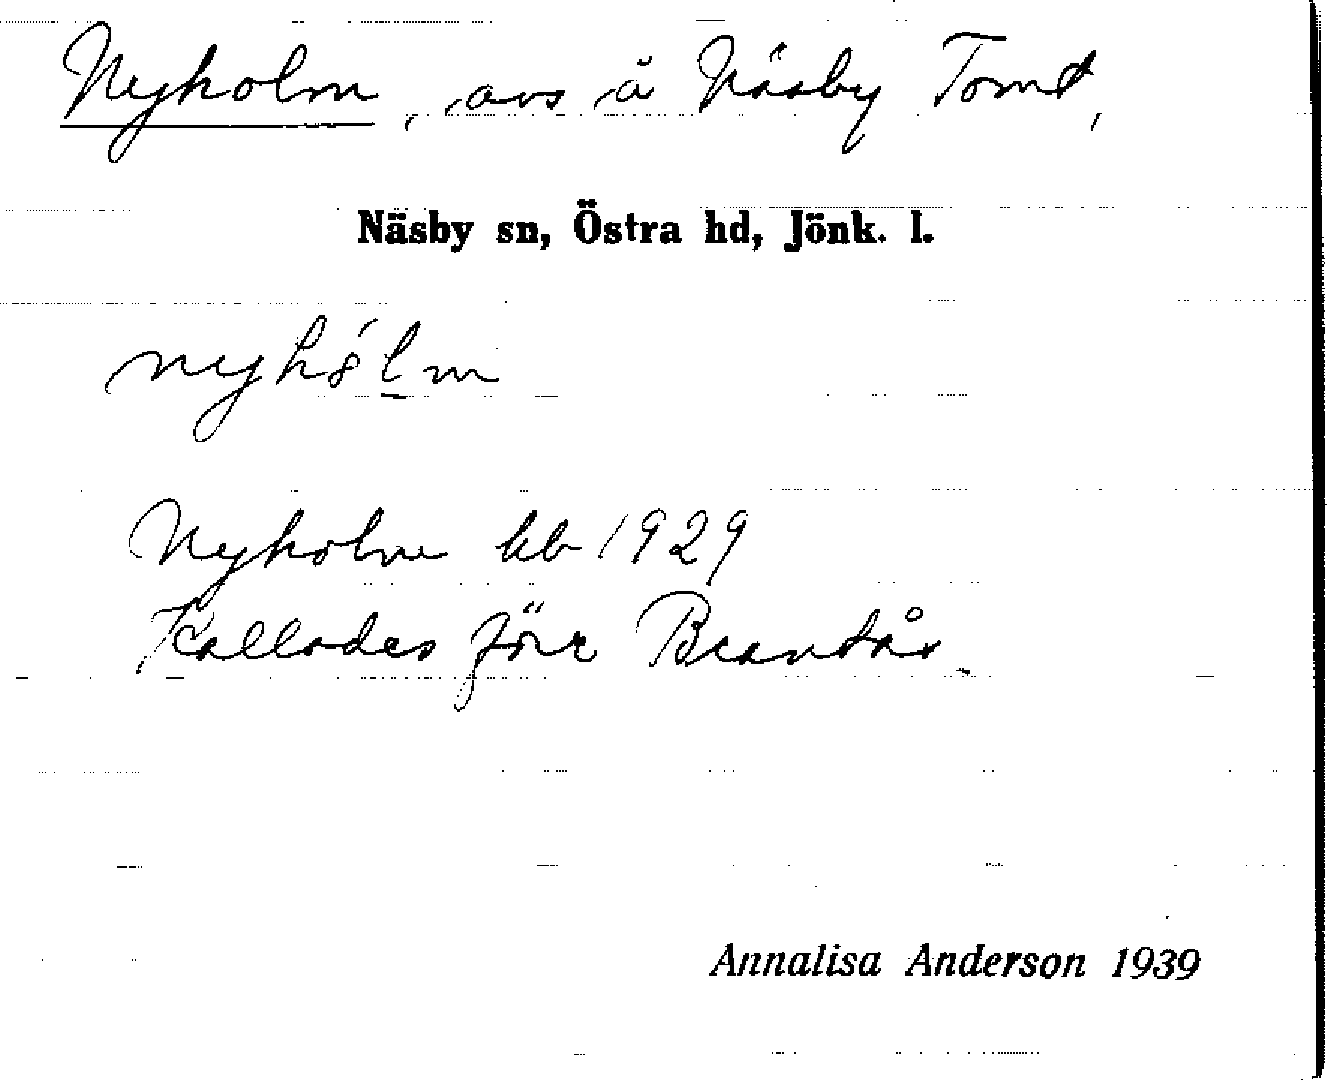 Nyholm, avs å Näsby Tomt,
Näsby sn, Östra hd, Jönk. l.
nyhólm
Nyholm hb 1929
Kallades förr Brantås
Annalisa Anderson 1939